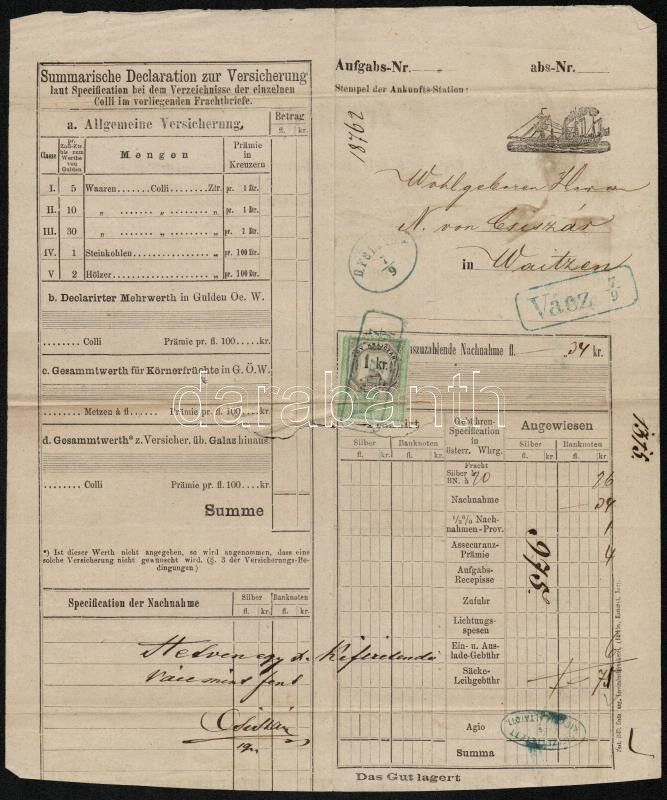 Summarische Declaration zur Versicherung
laut Specification bei dem Verzeichnisse der einzelnen
Colli im vorliegenden Frachtbriefe.
a. Allgemeine Versicherung.
Betrag
fl. kr.
Classe
pr. Zoll-Ztr. bis zum Werthe von Gulden
Mengen
Prämie in Kreuzern
I. 5 Waaren ...... Colli ...... Ztr. pr. 1 Ztr.
II. 10 " ...... " ...... " pr. 1 Ztr.
III. 30 " ...... " ...... " pr. 1 Ztr.
IV. 1 Steinkohlen pr. 100 Ztr.
V 2 Hölzer pr. 100 Ztr.
b. Declarirter Mehrwerth in Gulden Oe. W.
........ Colli Prämie pr. fl. 100 .....kr.
c. Gesammtwerth für Körnerfrüchte in G. Ö. W.
........ Metzen à fl. Prämie pr. fl. 100 .....kr.
d. Gesammtwerth* z. Versicher. üb. Galaz hinaus.
........ Colli Prämie pr. fl. 100 .....kr.
Summe
*) Ist dieser Werth nicht angegeben, so wird angenommen, dass eine
solche Versicherung nicht gewünscht wird. (§. 3 der Versicherungs-Be-
dingungen)
Specification der Nachnahme
Silber Banknoten
fl. kr. fl. kr.
Hetven egy
Vácz mint fent
Csiszár
Aufgabs-Nr.
abs-Nr.
Stempel der Ankunfts-Station:
18762
Wohlgeboren Herrn
N. von Csiszár
in Waitzen
7/9
Vácz 7/9
1 kr.
szuzahlende Nachnahme fl. 34 kr.
Silber Banknoten
fl. kr. fl. kr.
Gebühren-
Specification
in
österr. Whrg.
Angewiesen
Silber Banknoten
fl. kr. fl. kr.
Fracht
Silber kr.
BN. à 20 26
Nachnahme 34
1/2% Nach-
nahmen-Prov. 1
Assecuranz-
Prämie 4
Aufgabs-
Recepisse
Zufuhr
Lichtungs-
spesen
Ein- u. Aus-
lade-Gebühr 6
Säcke-
Leihgebühr
75
Agio
Summa
975
1375
Das Gut lagert
darabanth